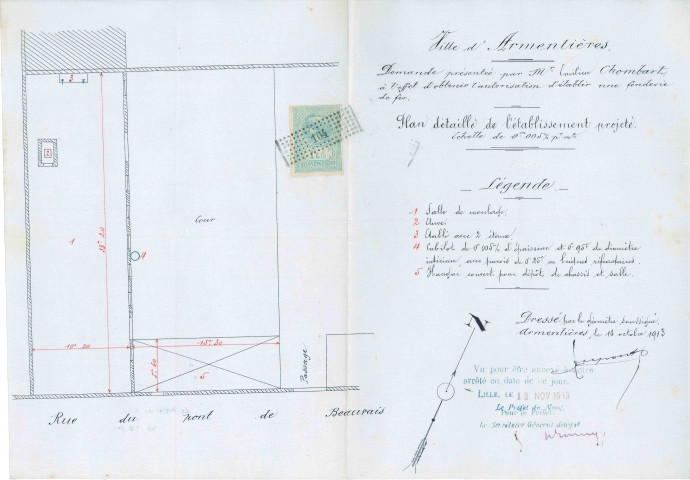 Ville d'Armentières.
Demande présentée par Mr Chombart
à l'effet d'obtenir l'autorisation d'établir une fonderie
de fer.
Plan détaillé de l'établissement projeté.
Echelle de 0m005m/ pr m.
Légende
1 Salle de moulage.
2 Cuve.
3 Etabli avec 2 étaux.
4 Cubilot de 0m005m/ d'épaisseur et 0m95 de diamètre
intérieur, avec parois de 0m25 en briques réfractaires.
5 Hangar couvert pour dépôt de chassis et sable.
Dressé par le géomètre soussigné,
Armentières, le 14 octobre 1913
N
Vu pour être annexé à notre
arrêté en date de ce jour.
LILLE, LE 12 NOV 1913
Le Préfet du Nord,
Pour le Préfet:
Le Secrétaire Général délégué
3
2
1
Cour
4
10m.20
15m.50
5m.60
5
Passage
Rue du pont de Beauvais